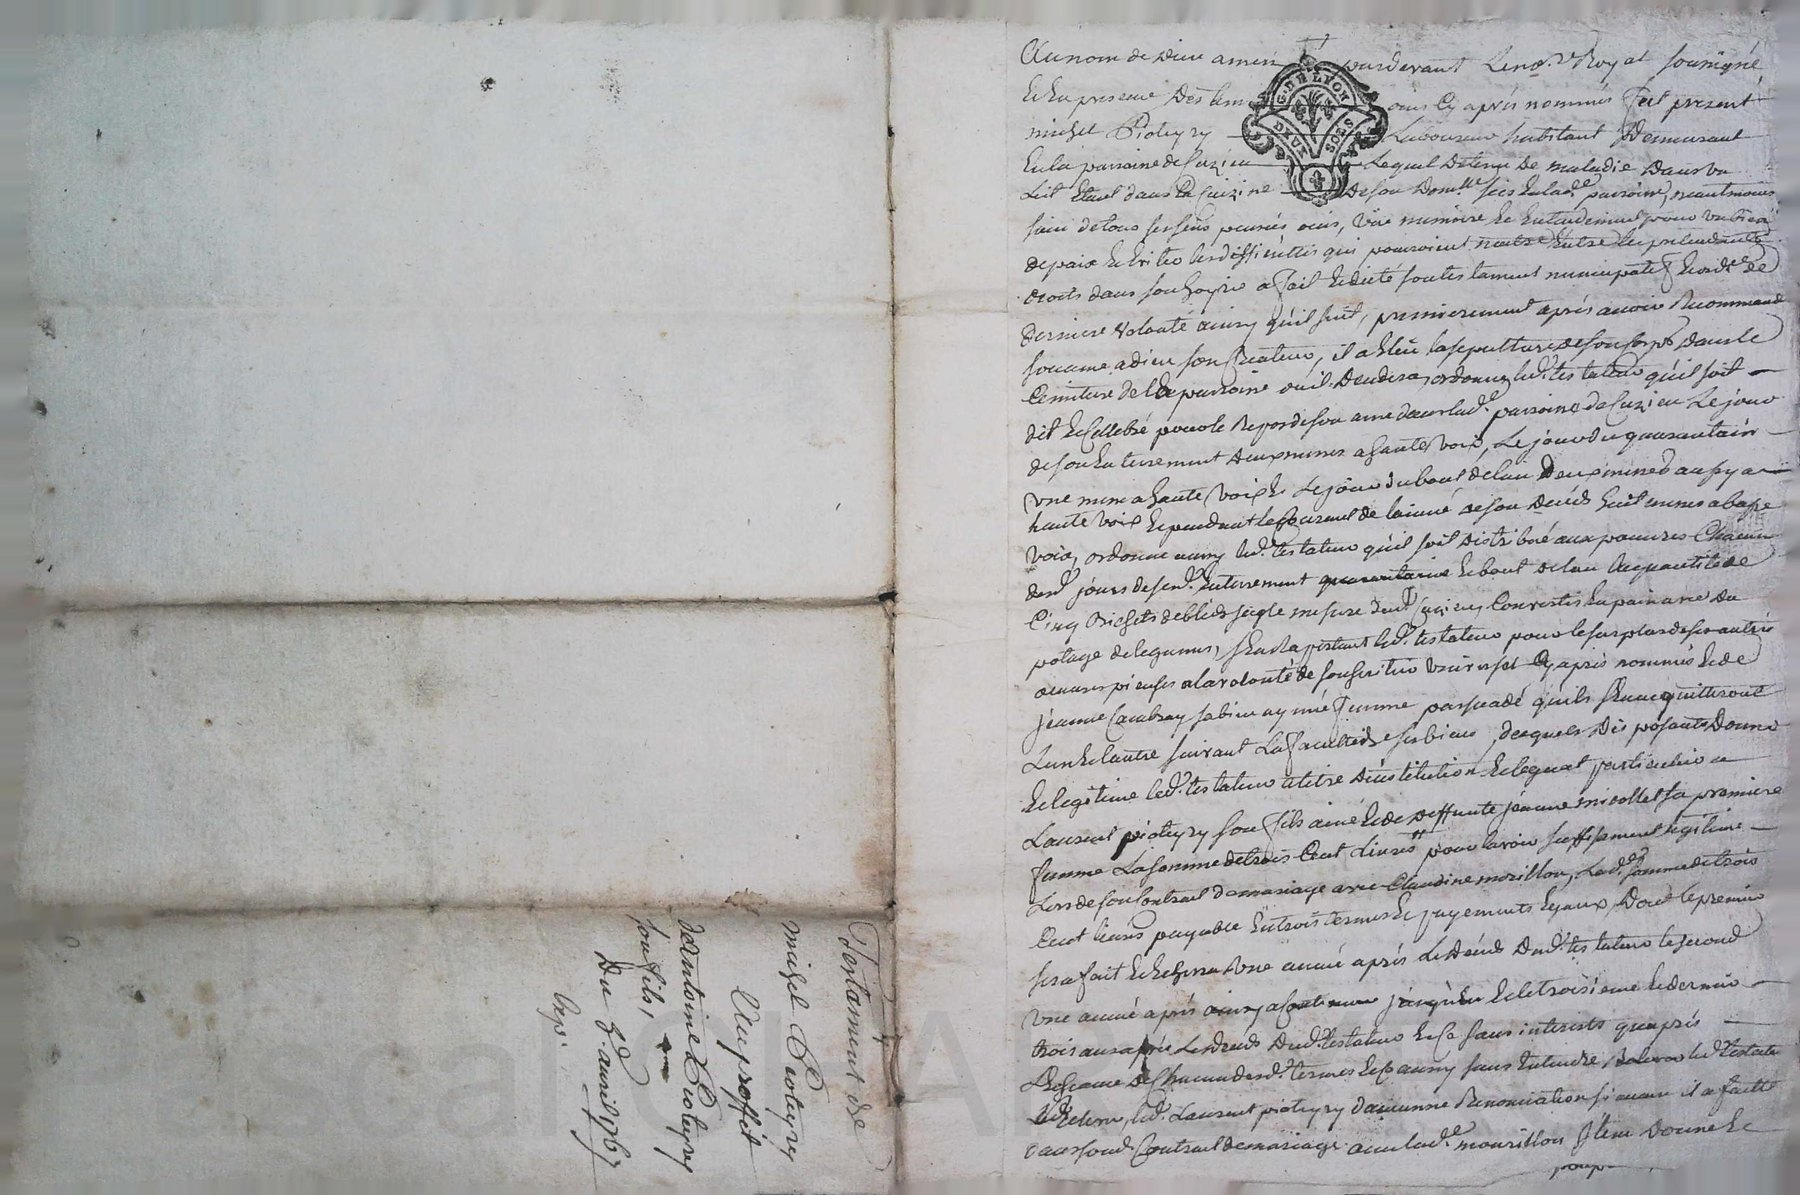 Au nom de Dieu amen pardevant Le no.re Royal soussigné
Et En presence Des temoins Cy après nommés fut present
michel Pioteyry Laboureur habitant Demeurant
En la parroine de Cuzieu Lequel Detenu de maladie Dans un
Lit Etant dans la Cuizine De son Dom.lle sise En lad.e parroine, neantmoins
sain de tous ses sens parmi eux, Vüe memoire Et Entendement pour un bien
de paix Et Eviter les difficultés qui pouroient naitre Entre les pretendants
droits dans son hoyrie a fait Et dicté son testament nuncupatif Et ord.ce de
Derniere Volonté ainsy qu'il suit, premierement après avoir Recommandé
son ame a dieu son Createur, il a Eleu la sepulture de son Corps dans le
Cimitiere de la parroine ou il Decedera, ordonne led. testateur qu'il soit
dit Et Celebré pour le Repos de son ame dans lad.e parroine de Cuzieu Le jour
de son Enterement deux messes a haute Voix, Le jour du quarantain
Une messe a haute Voix Et Le jour du bout de l'an Deux messes aussy a
haute Voix Et pendant le Courant de l'année de son Decès huit messes a basse
Voix, ordonne aussy led. testateur qu'il soit Distribué aux pauvres Chacun
desd. jours de sond. Enterement quarantaine Et bout de l'an la quantité de
Cinq Bichets de bled seigle mesure dud. Cuzieu Convertis En pain avec du
potage de legumes, s'En Raportant led. testateur pour le surplus de ses autres
oeuvres pieuses a la volonté de son heritier Universel Cy après nommé Et de
jeanne Cambray sa bien aymée femme persuadé qu'ils s'En acquitteront
L'un Et l'autre suivant La faculté de ses biens, desquels Disposant Donne
Et legitime led. testateur a titre d'institution Et legat particulier a
Laurent pioteyry son fils ainé Et de deffunte jeanne micollet sa premiere
femme La somme de trois Cent Livres pour l'avoir suffisament legitimé
Lors de son Contrat de mariage avec Claudine morillon, Lad.e somme de trois
Cent livres payable En trois termes Et payements Egaux, Dont le premier
sera fait Et Echerra Une année après Le Decès Dud. testateur le second
Une année après ainsy a Continuer jusqu'En Et le troisieme Et dernier
trois ans après Le decès Dud. testateur Et Ce sans interests qu'après
L'Echeance de Chacun desd. termes Et Ce aussy sans Entendre led. testateur
led. Laurent pioteyry d'aucunne Renonciation si aucune il a faitte
dans sond. Contrat de mariage avec lad.e mourillon Item Donne Et
pour
Testament de
michel Pioteyry
Au proffit
d'antoine Pioteyry
son fils,
Du 7.e avril 1767
Exp.